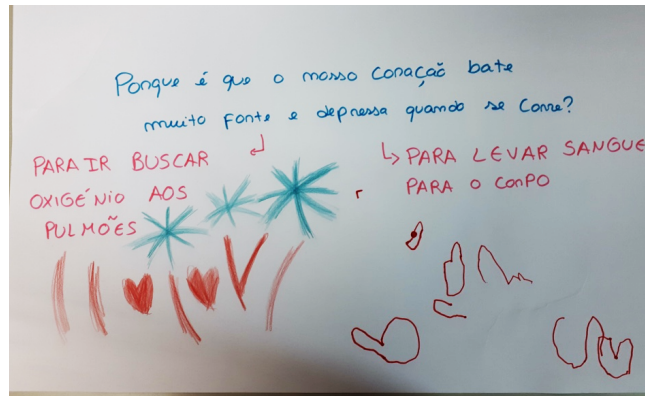 Porque é que o nosso coração bate
muito forte e depressa quando se corre?
PARA IR BUSCAR
OXIGÉNIO AOS
PULMÕES
PARA LEVAR SANGUE
PARA O CORPO